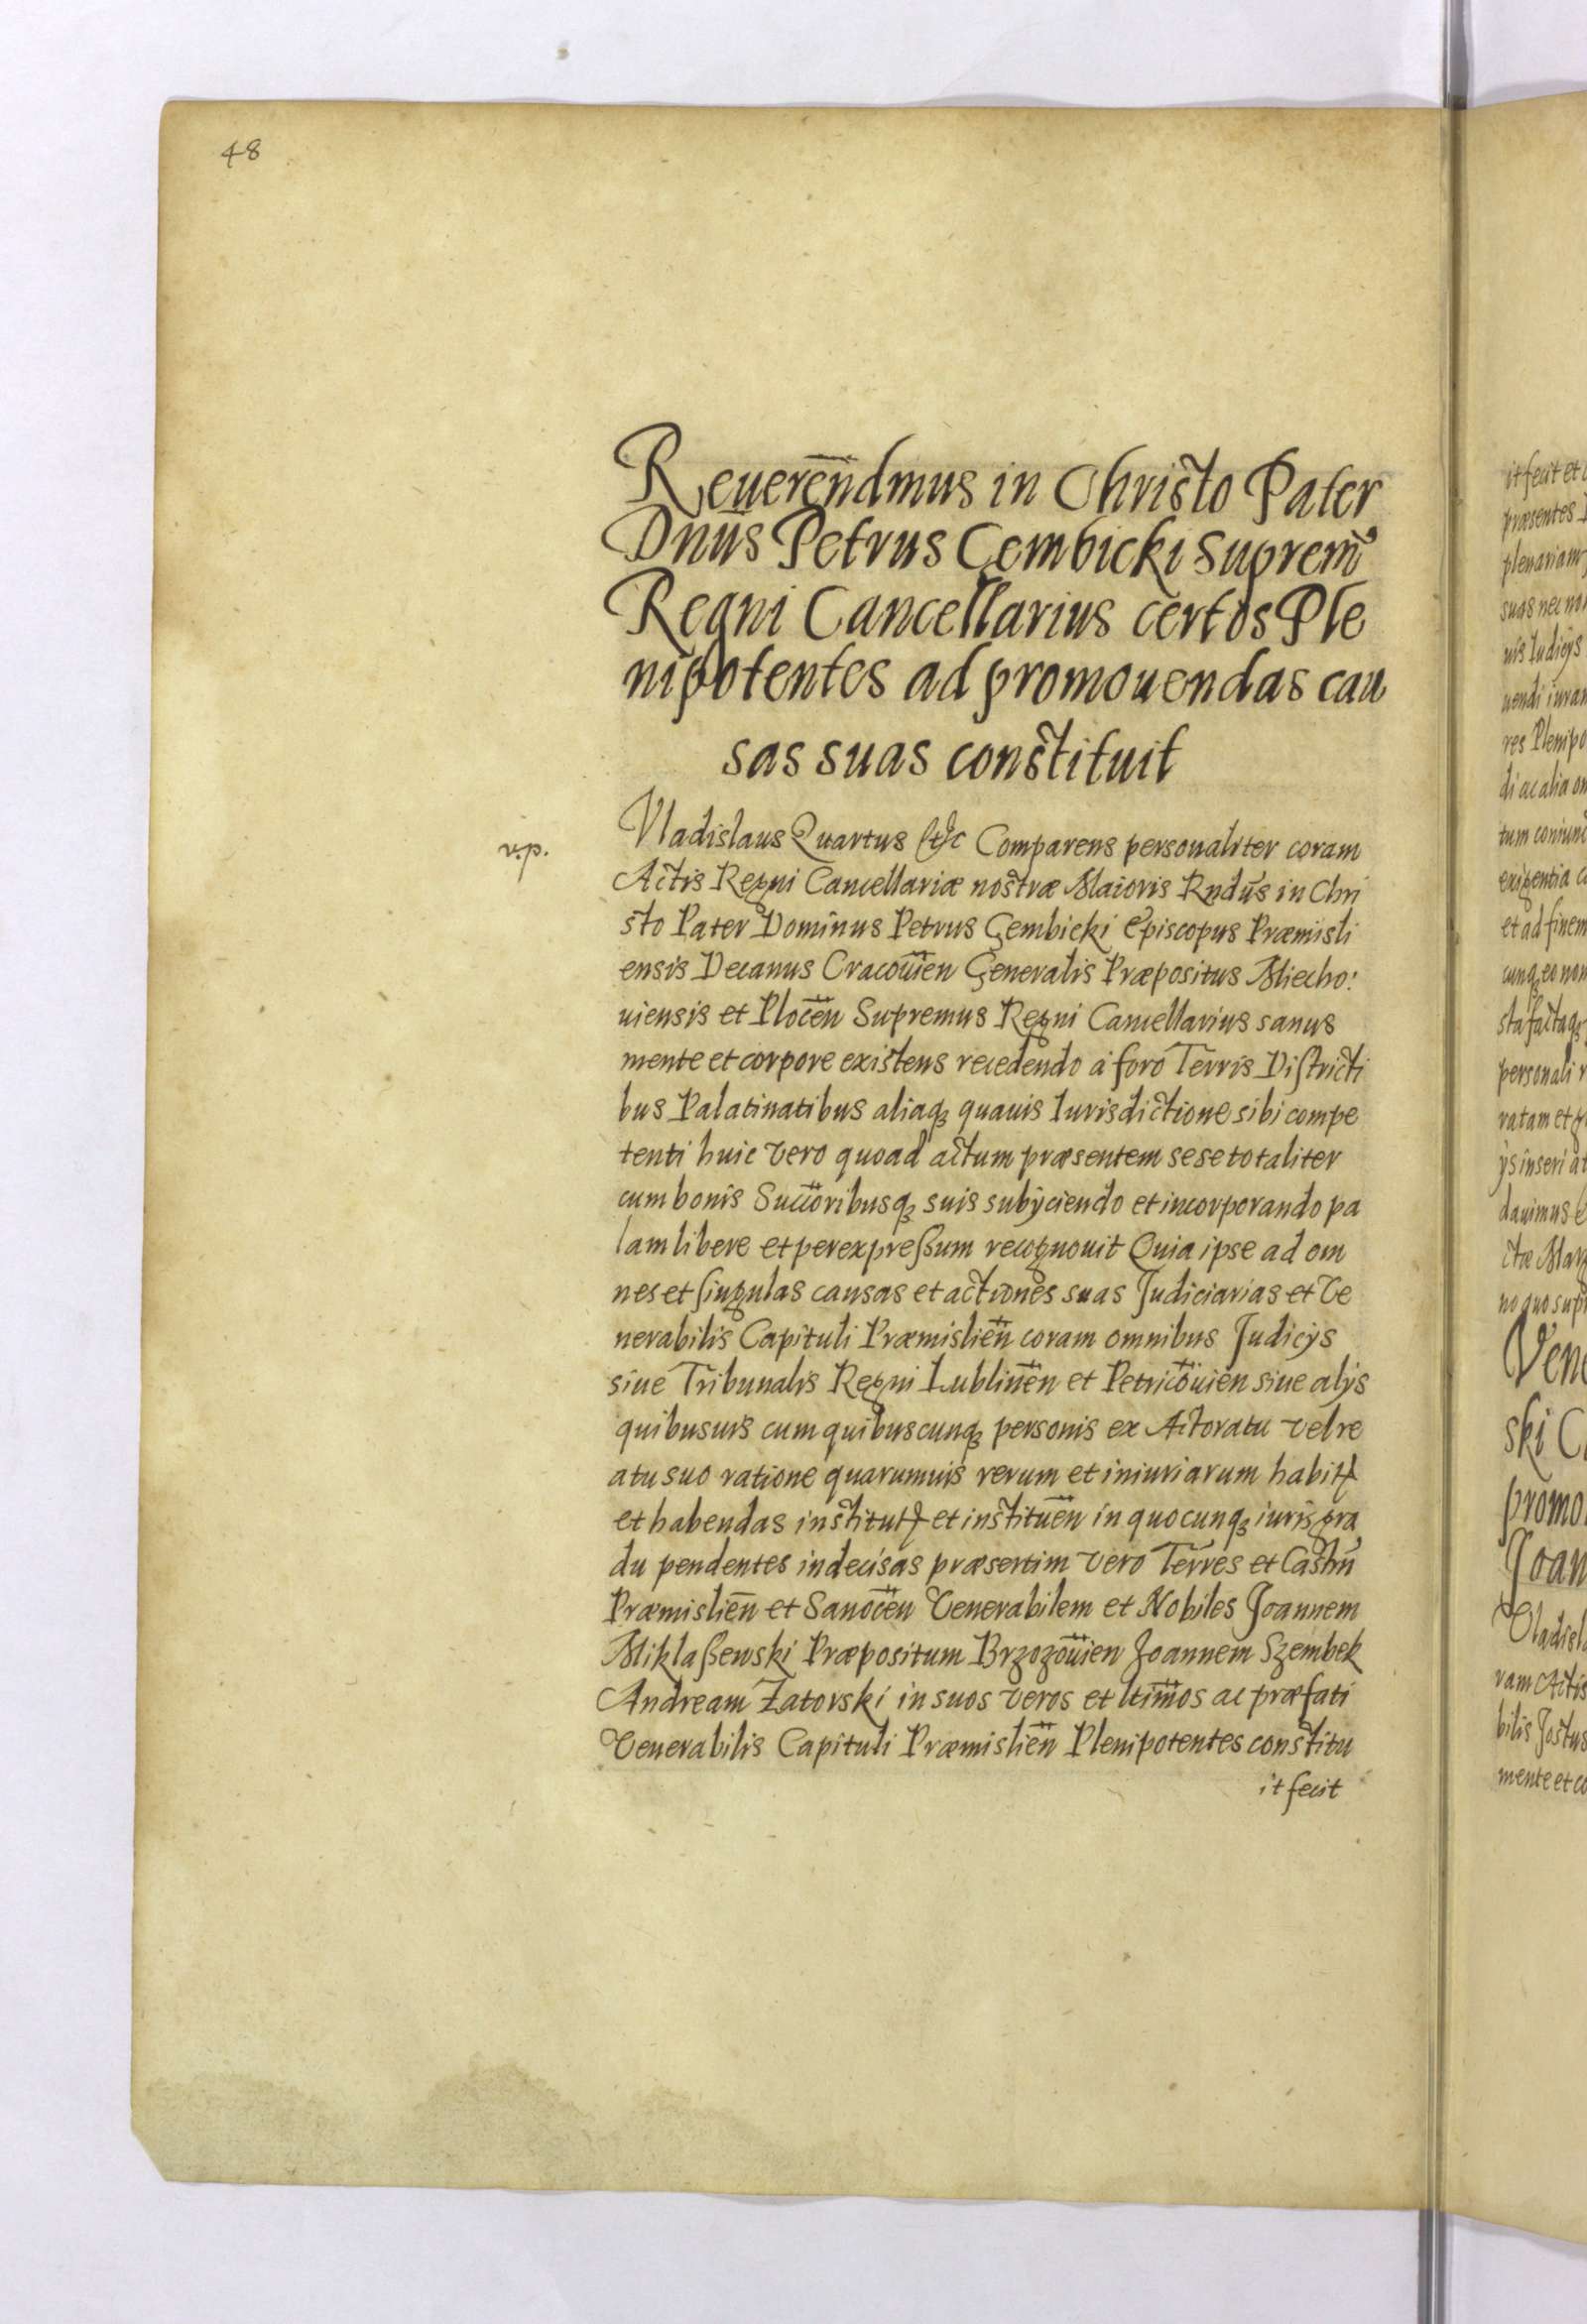 48
Reuerēndmus in Christo Pater
Dnūs Petrus Gembicki Suprem̃
Regni Cancellarius certos Ple
nipotentes ad promouendas cau
sas suas constituit
Vladislaus Quartus &c Comparens personaliter coram
Actis Regni Cancellariæ nostræ Maioris Rndūs in Chri
sto Pater Dominus Petrus Gembicki Episcopus Præmisli
ensis Decanus Cracouien̄ Generalis Præpositus Miecho:
uiensis et Plocen̄ Supremus Regni Cancellarius sanus
mente et corpore existens recedendo à foro Terris Districti
bus Palatinatibus aliaqȝ quauis Iurisdictione sibi compe
tenti huic vero quoad actum præsentem sese totaliter
cum bonis Succoribusqȝ suis subijciendo et incorporando pa
lam libere et per expreßum recognouit Quia ipse ad om
nes et singulas causas et actiones suas Judiciarias et Ve
nerabilis Capituli Præmislien̄ coram omnibus Judicijs
siue Tribunalis Regni Lublinen̄ et Petricouien̄ siue alijs
quibusuis cum quibuscunqȝ personis ex Actoratu vel re
atu suo ratione quarumuis rerum et iniuriarum habit̄
et habendas institut̄ et instituen̄ in quocunqȝ iuris gra
du pendentes indecisas præsertim vero Terres et Castrn̄
Præmislien̄ et Sanocen̄ Venerabilem et Nobiles Joannem
Miklaßewski Præpositum Brzozouien̄ Joannem Szembek
Andream Zatorski in suos veros et ltimos ac præfati
Venerabilis Capituli Præmislien̄ Plenipotentes constitu
it fecit
it fecit et
præsentes
plenariam
suas nec no
uis Iudicijs
uendi iuram
res Plenipo
di ac alia om
tum coniunc
exigentia
et ad finem
cunqȝ eo nom
sta factaqȝ
personali
ratam et g
ijs inseri
dauimus
ctæ Mar
no quo sup
Vene
ski C
promo
Joan
Vladisla
ram Actis
bilis Jostus
mente et co